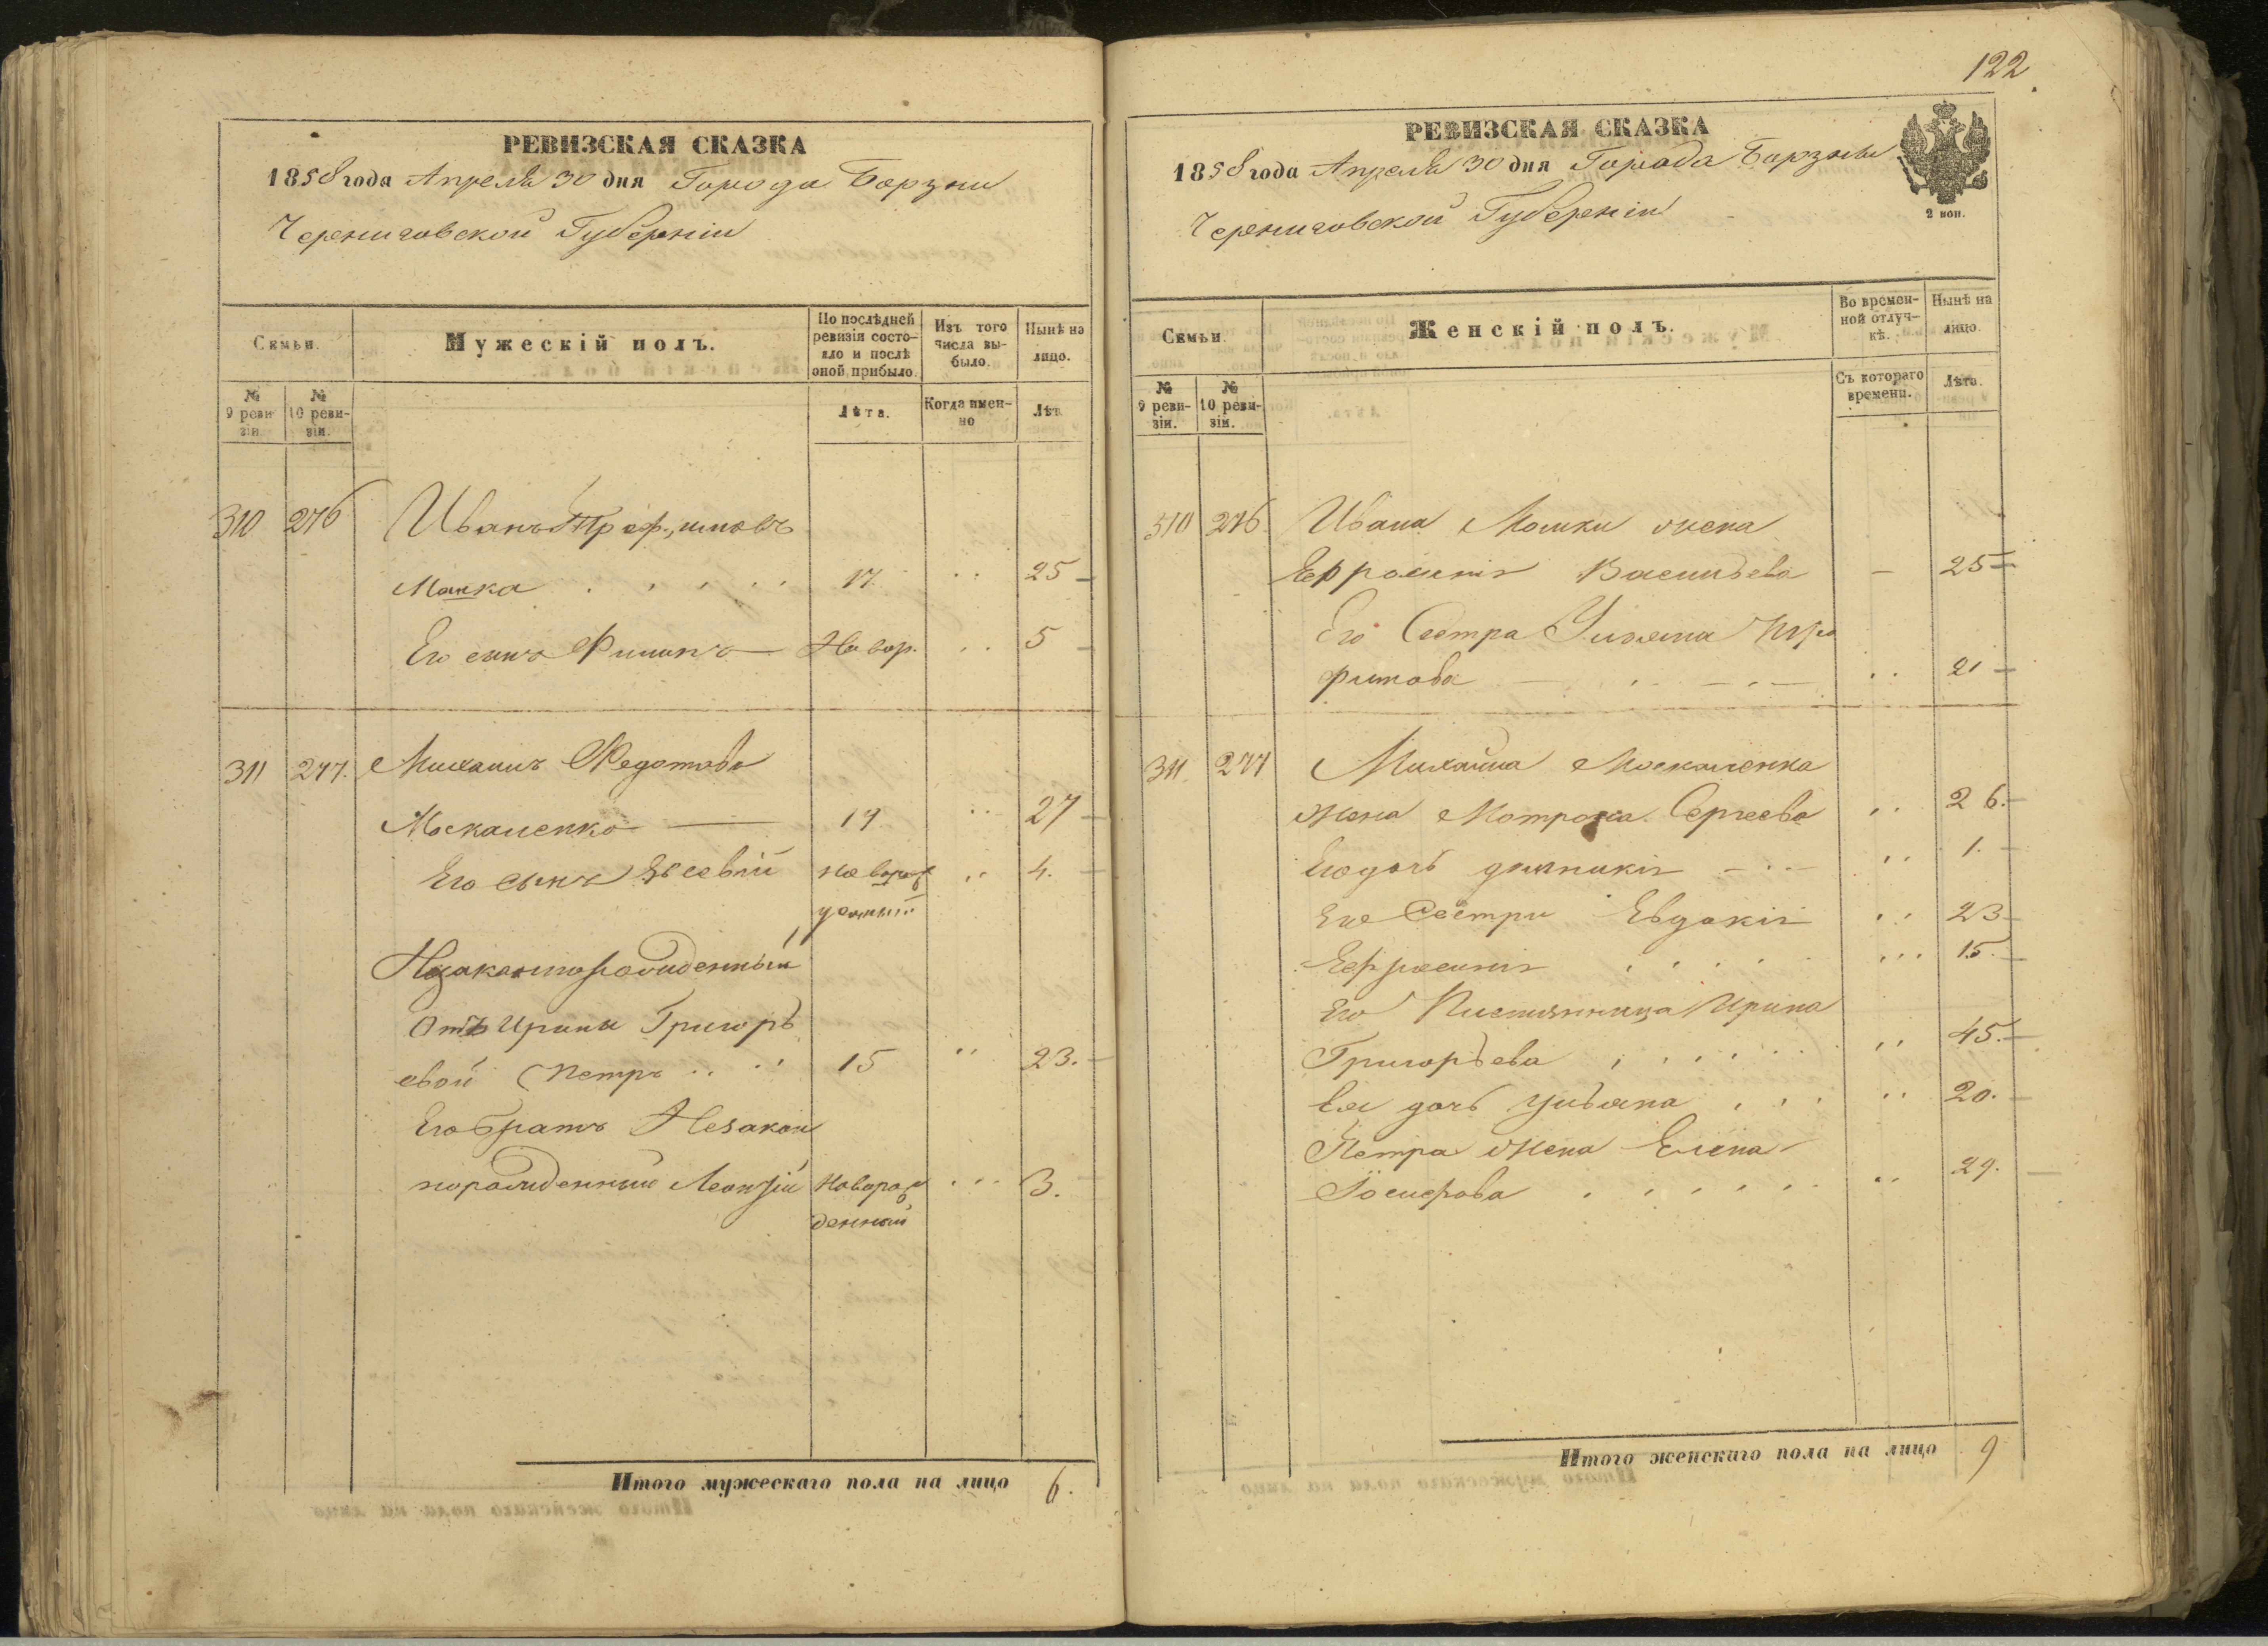 РЕВИЗСКАЯ СКАЗКА
1858 года Апреля 30 дня Города Борзни
Черниговской Губерніи
Семьи.
Мужескій полъ.
По послѣдней ревизіи состояло и послѣ оной прибыло.
Изъ того числа выбыло.
Нынѣ на лицо.
№ 9 ревизіи.
№ 10 ревизіи.
Лѣта.
Когда именно
Лѣта
310 276 Иванъ Трофимовъ
Мошка 17. 25
Его сынъ Филипъ Новор. 5
311 277. Михаилъ Федотовъ
Москаленко 19 27
Его сынъ Евсевій новорож 4.
денный
Незаконнорожденный
Отъ Ирины Григорь
евой Петръ 15 23.
Его братъ Незакон
норожденный Леонтій Новорож 3.
денный
Итого мужескаго пола на лицо 6.
122
РЕВИЗСКАЯ СКАЗКА
1858 года Апреля 30 дня Города Борзны
Черниговской Губерніи
2 коп.
Семьи.
Женскій полъ.
Во временной отлучкѣ.
Нынѣ на лицо.
№ 9 ревизіи.
№ 10 ревизіи.
Съ котораго времени.
Лѣта.
310 276. Ивана Мошки жена
Ефросинія Васильева 25
Его Сестра Ульяна Тро
фимова 21
311. 277 Михайла Москаленка
жена Мотрона Сергеева 26.
Его дочь 1.
Его Сестри Евдокія 23
Ефросинія 15.
Его Племянница Ирина
Григорьева 45.
Ея дочь Ульяна 20.
Петра жена Елена
29.
Итого женскаго пола на лицо 9